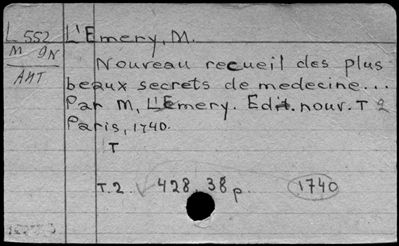 L 552 L'Emery, M.
M 9N
ANT
Nouveau recueil des plus
beaux secrets de medecine...
Par M, L'Emery. Edit. nouv. T 2
Paris, 1740.
T
T.2. 428, 38 p. 1740